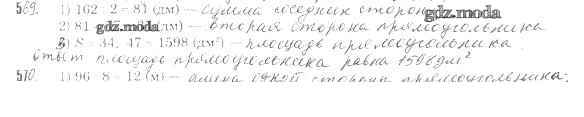 569. 1) 162 : 2 = 81 (дм) — сумма соседних сторон
gdz.moda
2) 81 gdz.moda (дм) — вторая сторона прямоугольника
3) S = 34 · 47 = 1598 (дм²) — площадь прямоугольника.
Ответ площадь прямоугольника равна 1598 дм²
570. 1) 96 : 8 = 12 (м) — длина одной стороны прямоугольника.